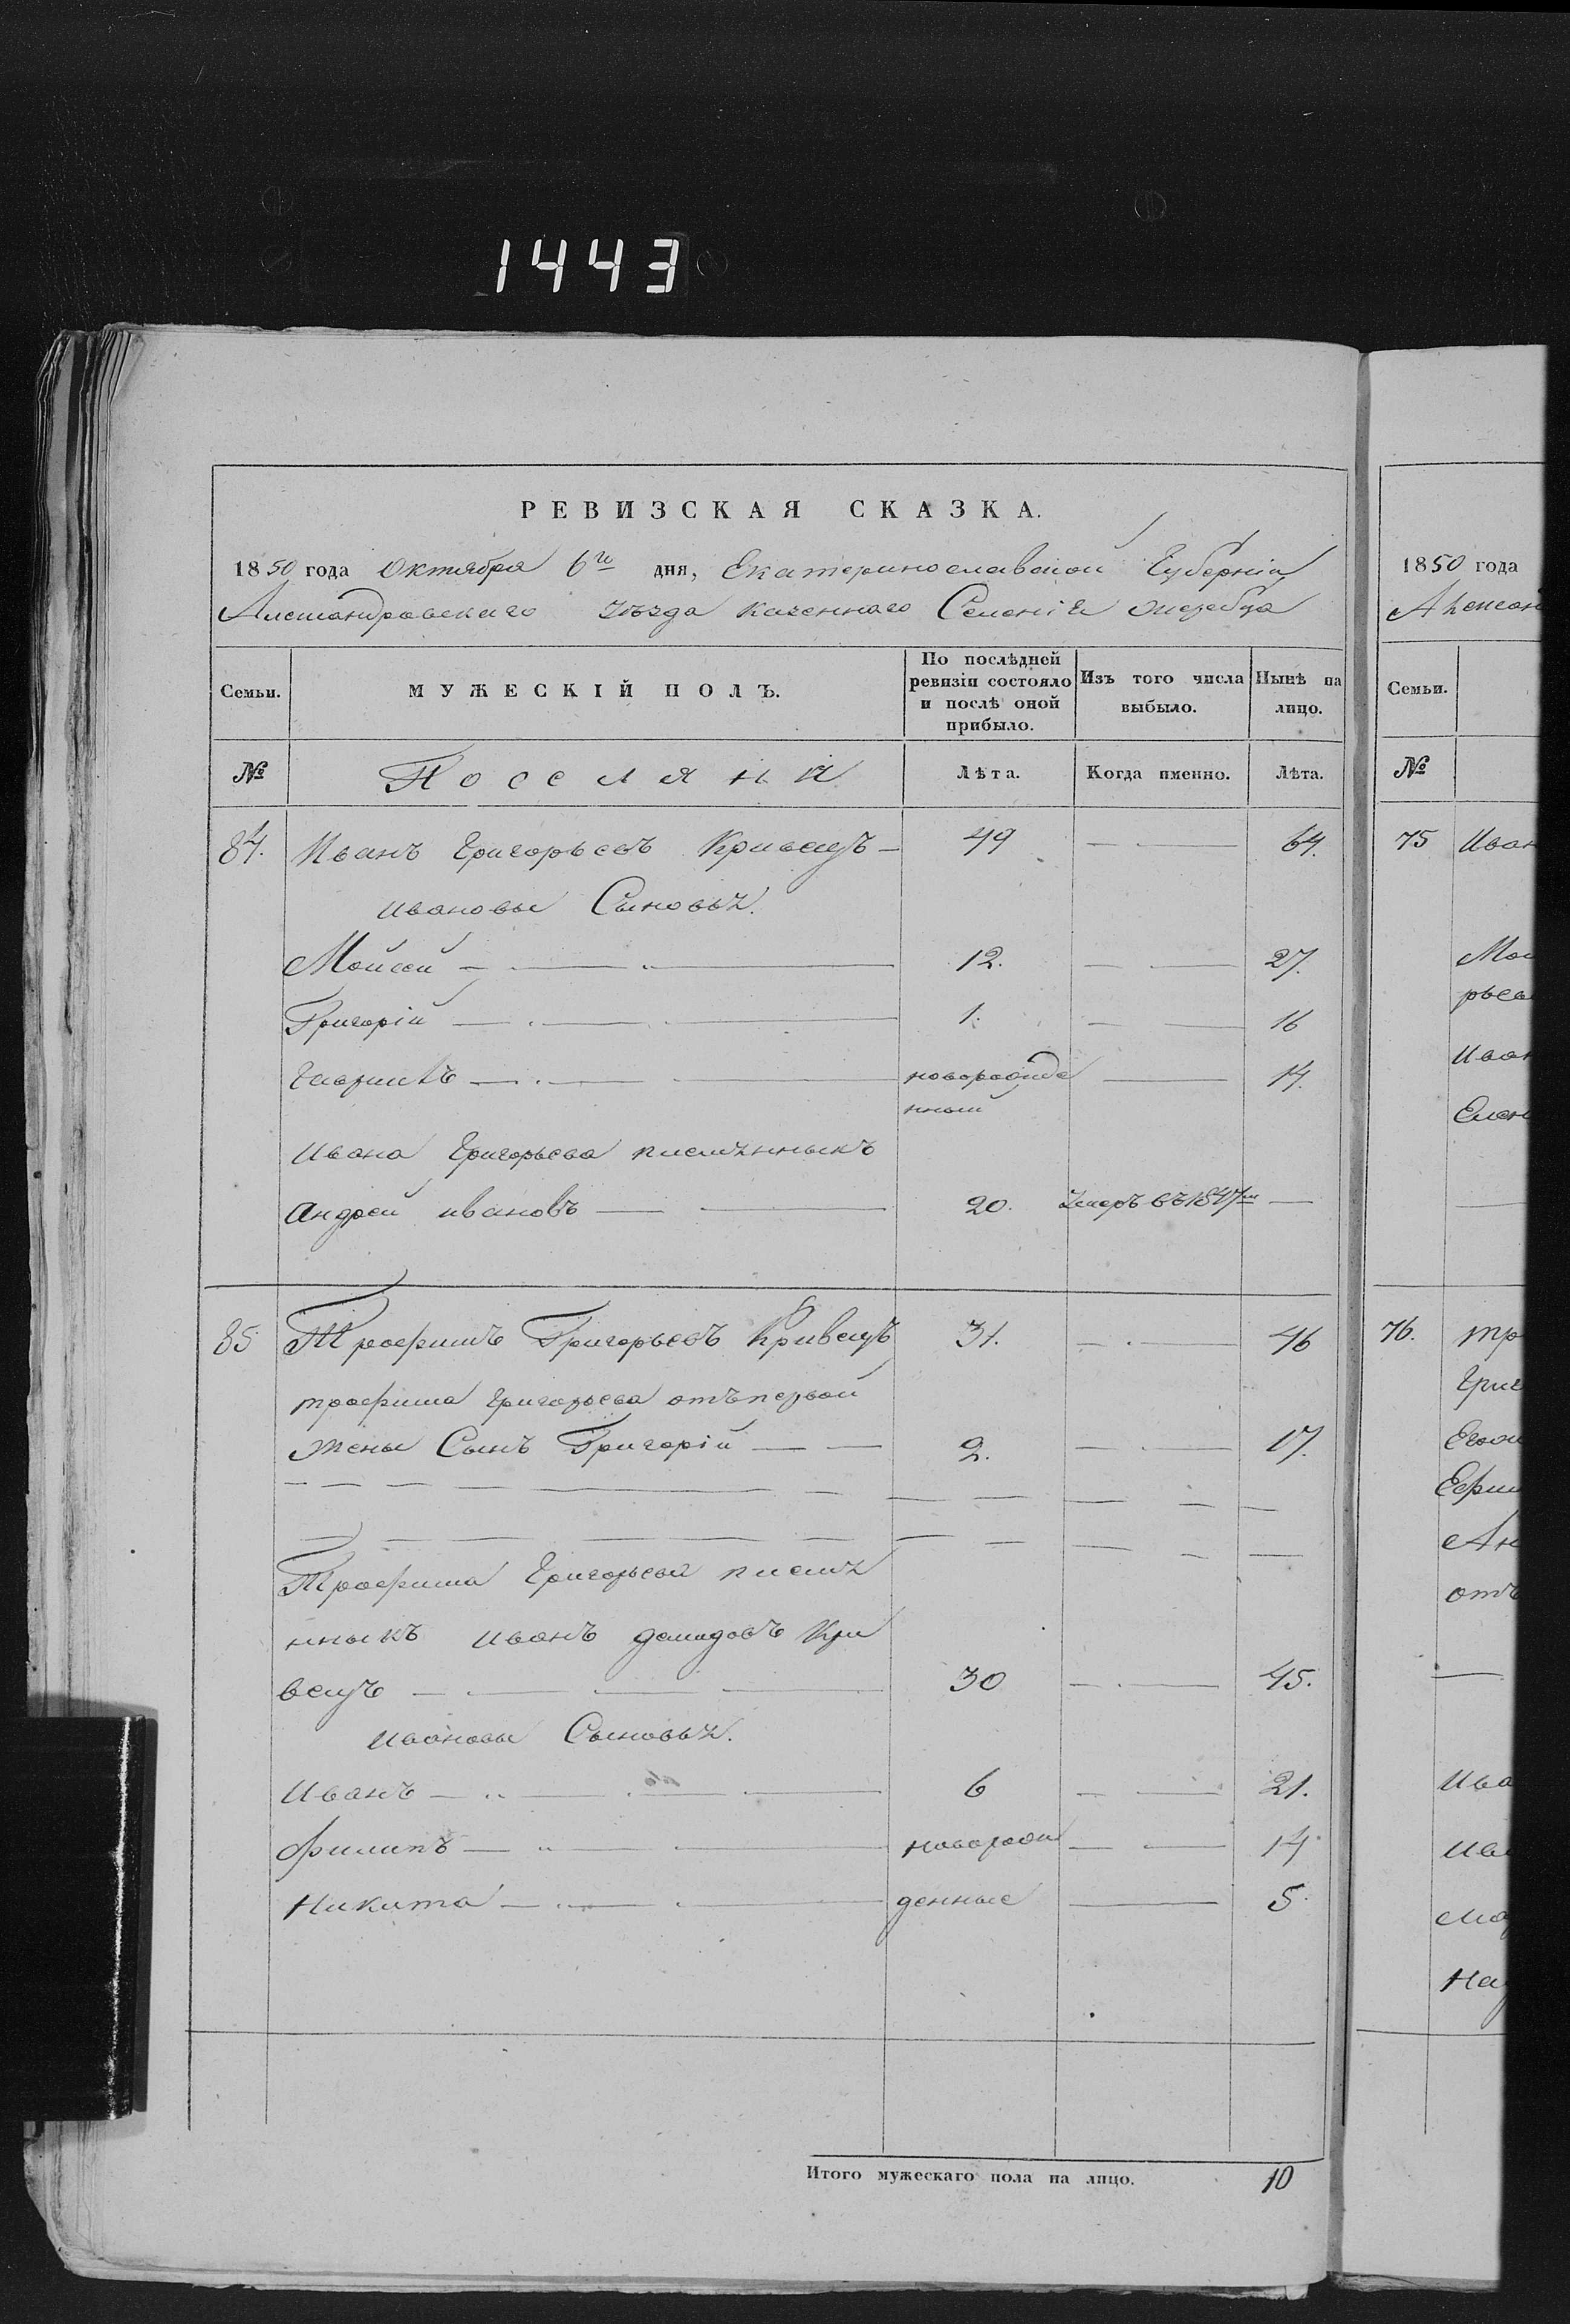 1443
РЕВИЗСКАЯ СКАЗКА.
1850 года Октября 6го дня, Екатеринославской Губерніи
Александровскаго уѣзда казеннаго Селенія Жеребца
Семьи. МУЖЕСКІЙ ПОЛЪ. По послѣдней ревизіи состояло и послѣ оной прибыло. Изъ того числа выбыло. Нынѣ на лицо.
№ Поселяни Лѣта. Когда именно. Лѣта.
84. Иванъ Григорьевъ Кривецъ 49 64.
Ивановы Сыновья.
Мойсей 12. 27.
Григорій 1. 16
Гаврилъ новорожде 14.
нный
Ивана Григорьева племянныкъ
андрей ивановъ 20. Умеръ въ 1847м
85 Трофимъ Григорьевъ Кривецъ 31. 46
трофима григорьева отъ первой
жены Сынъ Григорій 2. 17.
Трофима Григорьева племя
нныкъ иванъ демидовъ Кри
вецъ 30 45.
Ивановы Сыновья.
Иванъ 6 21.
филипъ новорож 14
Никита денные 5.
Итого мужескаго пола на лицо. 10
1850 года
Александ
Семьи.
№
75 Иван
Мои
рьев
Иван
Елен
76. тр
Григ
Ефим
Ан
отъ
Ива
Ива
Мар
На